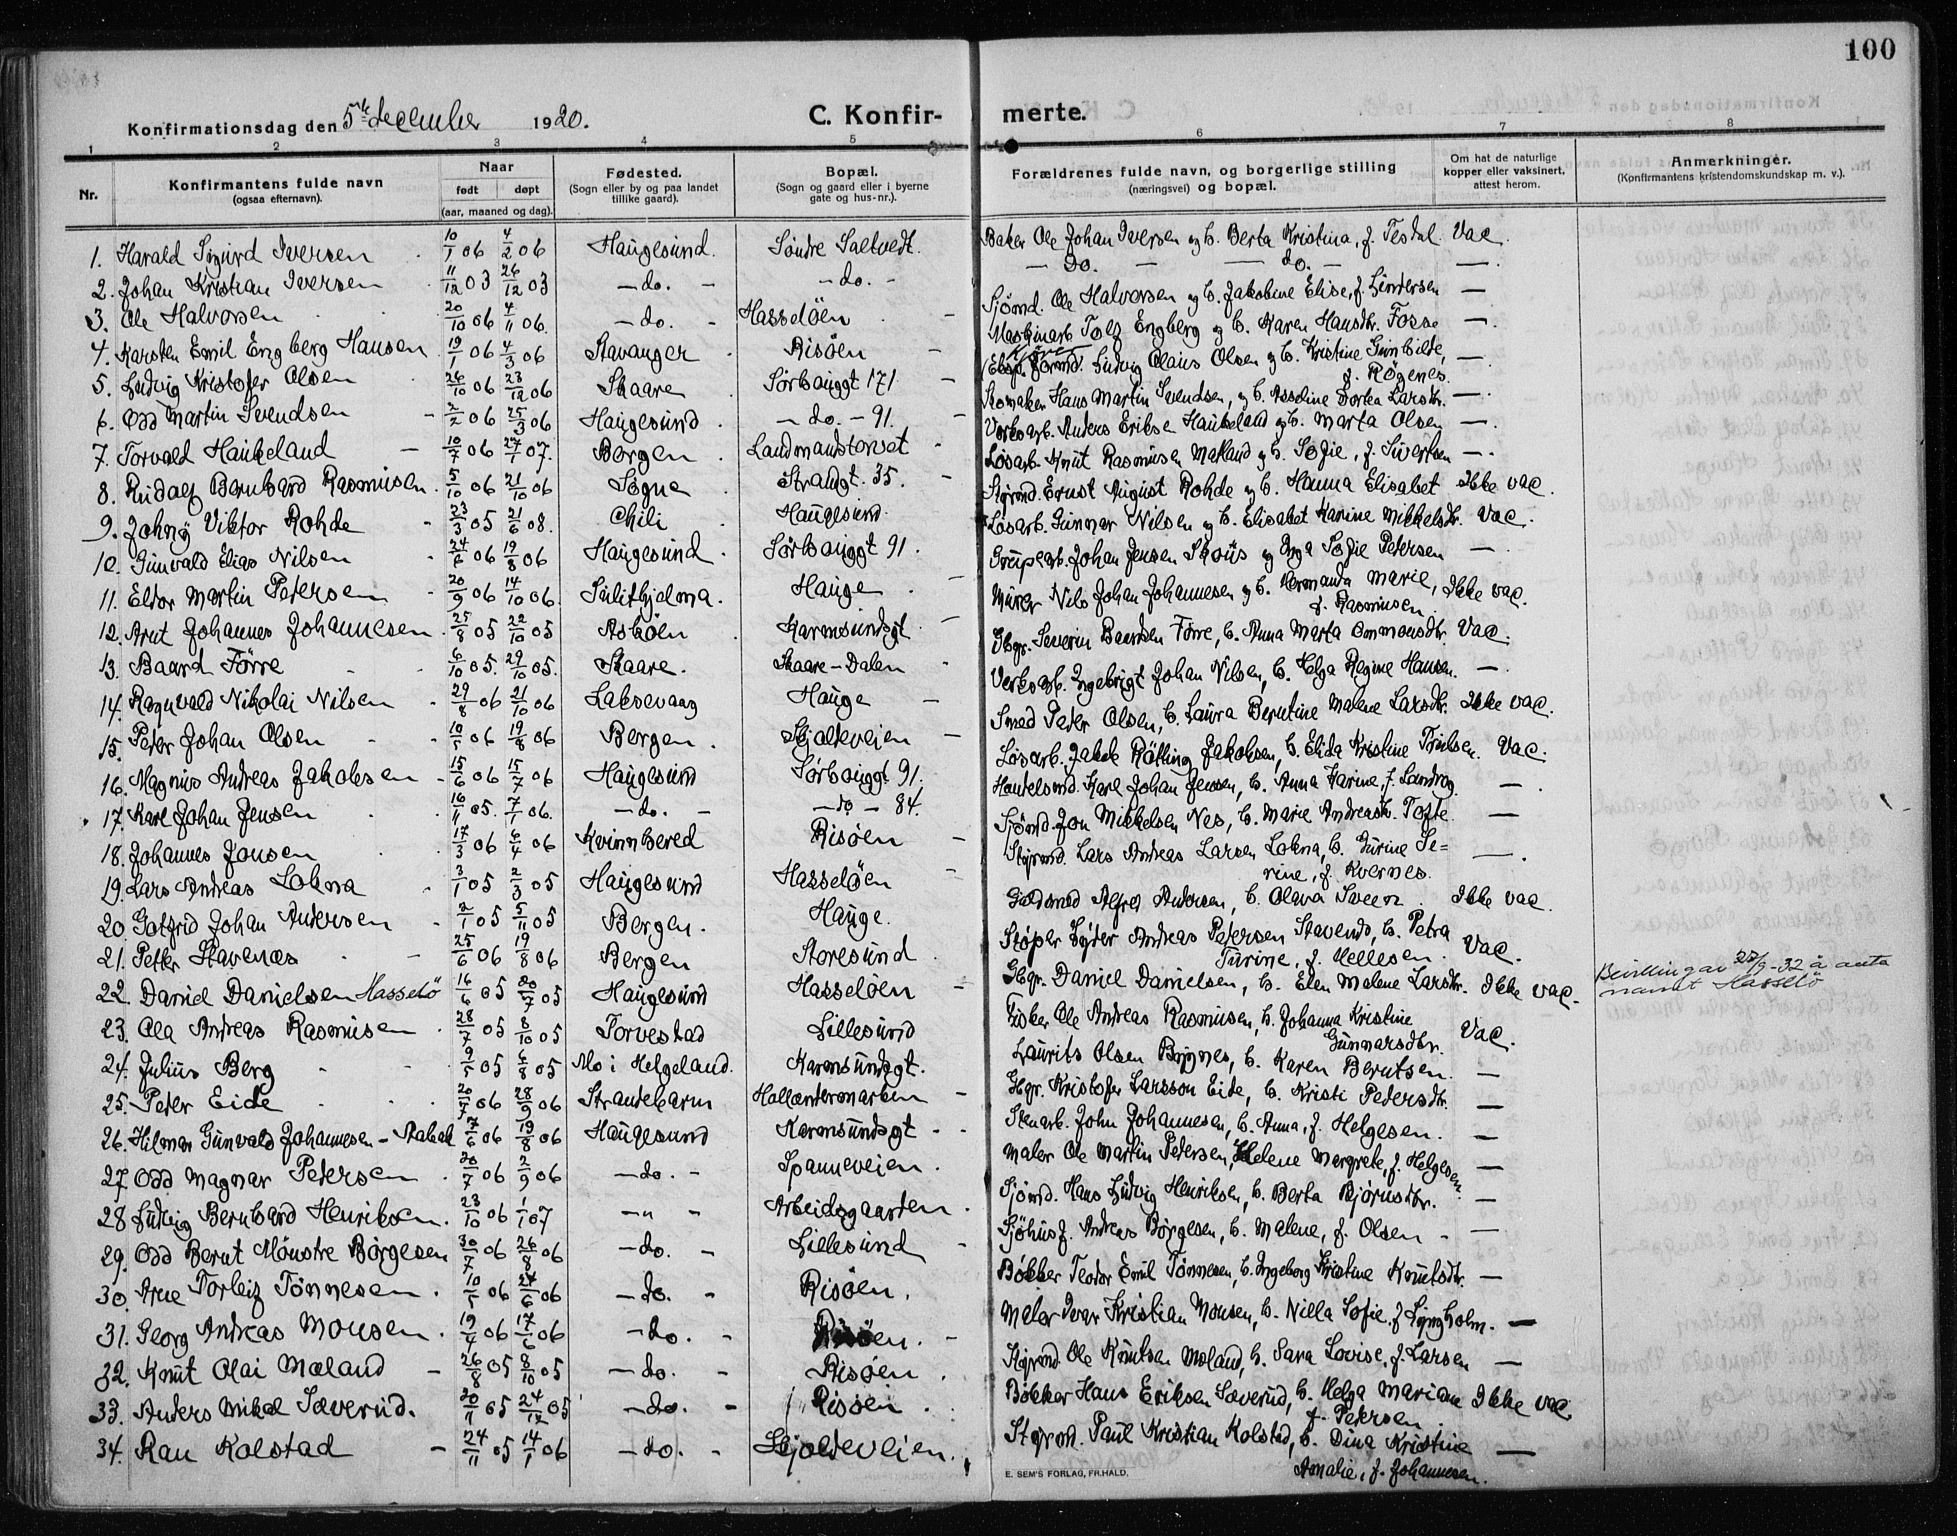 100
Konfirmationsdag den 5te december 1920.
C. Konfirmerte.
1 2 3 4 5 6 7 8
Nr. | Konfirmantens fulde navn (ogsaa efternavn). | Naar født døpt (aar, maaned og dag). | Fødested. (Sogn eller by og paa landet tillike gaard). | Bopæl. (Sogn og gaard eller i byerne gate og hus-nr.). | Forældrenes fulde navn, og borgerlige stilling (næringsvei) og bopæl. | Om hat de naturlige kopper eller vaksinert, attest herom. | Anmerkninger. (Konfirmantens kristendomskundskap m. v.).
1. Harald Sigurd Iversen 10/1 06 4/2 06 Haugesund. Søndre Saltvedt. Baker Ole Johan Iversen og h. Berta Kristina, f. Tesdal. Vac.
2. Johan Kristian Iversen 11/12 03 26/12 03 - do. - - do. - - do. - - do. - -
3. Ole Halvorsen 20/10 06 4/11 06. - do. - Hasseløen Sjømd. Ole Halvorsen og h. Jakobine Elise, f. Lindersen -
4. Karsten Emil Engberg Hansen 19/1 06 4/3 06 Stavanger Risøen Maskinarb. Tolf Engberg og h. Karen Hansdtr. Fosse -
5. Ludvig Kristofer Olsen 26/10 06 23/12 06 Skaare Sørhauggt 171 Formd. Ludvig Olaus Olsen og h. Kristine Gunhilde, f. Røgenes. -
6. Odd Martin Svendsen 2/2 06 25/3 06 Haugesund - do. - 91. Skomaker Hans Martin Svendsen, og h. Asseline Dortea Larsdtr. -
7. Torvald Haukeland 10/7 06 27/1 07. Bergen Landmandstorvet Verksarb. Anders Eriksen Haukeland og h. Marta Olsen -
8. Rudolf Bernhard Rasmusen 5/10 06 21/10 06 Sogne Strandgt. 35. Løsarb. Knut Rasmusen Mæland og h. Sofie, f. Sivertsen -
9. Johny Viktor Rohde 23/3 05 21/6 08. Chili Haugesund. Styrmd. Ernst August Rohde og h. Hanna Elisabet Ikke vac.
10. Gunvald Elias Nilsen 24/6 06 19/8 06 Haugesund Sørhauggt 91. Løsarb. Gunnar Nilsen og h. Elisabet Karine Mikkelsdtr. Vac.
11. Eldor Martin Petersen 20/9 06 14/10 06. Sulitjelma. Hauge Grubearb. Johan Jensen Skous og Inga Sofie Petersen -
12. Arnt Johannes Johannesen 25/8 05 22/10 05 Askøen Karmsundsgt. Murer Nils Johan Johannesen og h. Hermanda Marie, f. Rasmusen. Ikke vac.
13. Baard Førre 6/10 05. 29/10 05. Skaare. Skaare - Dalen Gbgr. Severin Baardsen Førre, h. Anna Marta Ommensdtr. Vac.
14. Ragnvald Nikolai Nilsen 29/8 06 21/10 06 Laksevaag Hauge Verksarb. Ingebrigt Johan Nilsen, h. Helga Regine Hansen. -
15. Peder Johan Olsen 10/5 06 19/8 06 Bergen. Skjoldeveien Smed Peter Olsen, h. Laura Berntine Malene Larsdtr. Ikke vac.
16. Magnus Andreas Jakobsen 15/6 06 15/7 06 Haugesund Sørhauggt 91. Løsarb. Jakob Røtting Jakobsen, h. Elida Kristine Trulsen. Vac.
17. Karl Johan Jensen 16/11 05. 7/1 06. - do. - - do - 84. Handelsmd. Karl Johan Jensen, h. Anna Karine, f. Landrog. -
18. Johannes Jonsen 17/3 06 6/4 06 Kvinnhered Risøen Sjømd. Jon Mikkelsen Nes, h. Marie Andreasdtr. Tofte. -
19. Lars Andreas Lokna 3/1 05 2/3 05 Haugesund Hasseløen Styrmd. Lars Andreas Larsen Lokna, h. Gurine Serine, f. Kvernes. -
20. Gotfrid Johan Andersen 2/1 05 5/11 05 Bergen. Hauge. Guldsmed Alfred Andersen, h. Olava Sveen Ikke vac.
21. Petter Stavenæs 25/6 06 19/8 06 Bergen Storesund Støper Lyder Andreas Petersen Stavenes, h. Petra Turine, f. Mellesen. Vac.
22. Daniel Danielsen Hasselø 16/6 05 30/7 05 Haugesund Hasseløen Gbgr. Daniel Danielsen, h. Elen Malene Larsdtr. Ikke vac. Bevilling av 27/9-32 å anta navnet Hasselø
23. Ola Andreas Rasmusen 28/7 05 8/10 05 Torvestad Lillesund Fisker Ole Andreas Rasmusen, h. Johanna Kristine Gunnarsdtr. Vac.
24. Julius Berg 9/5 05 6/8 05 Mo i Helgeland. Karmsundsgt. Laurits Olsen Brynes, h. Karen Berntsen. -
25. Peter Eide 20/7 06 28/9 06 Strandebarm Hollændermarken Gbgr. Kristofer Larsson Eide, h. Kristi Pedersdtr. -
26. Hilmar Gunvald Johannesen - Stabak 17/6 06 19/8 06 Haugesund Karmsundsgt Stenarb. John Johannesen, h. Anna, f. Helgesen. -
27. Odd Magnar Petersen 20/7 06 2/9 06 - do. - Spanneveien. Maler Ole Martin Petersen, Helene Margrete, f. Helgesen. -
28. Ludvig Bernhard Henriksen. 23/10 06 1/1 07 - " - Arbeidsgaarden. Sjømd. Hans Ludvig Henriksen, h. Berta Bjørnsdtr. -
29. Odd Bernt Mønstre Børgesen 30/7 06 26/8 06 - do. - Lillesund Sjøhusf. Andreas Børgesen, h. Malene, f. Olsen -
30. Arne Torleif Tønnesen. 10/5 06 24/6 06 - do. - Risøen. Bøkker Teodor Emil Tønnesen, h. Ingeborg Kristine Knutsdtr. -
31. Georg Andreas Monsen. 19/4 06 17/6 06 - do. - Risøen. Maler Ivar Kristian Monsen, h. Nilla Sofie, f. Lyngholm. -
32. Knut Olai Mæland 26/8 05 8/10 05 - do. - Risøen Styrmd. Ole Knutsen Mæland, h. Sara Lovise, f. Larsen -
33. Anders Mikal Sæverud. 20/11 05 24/12 05 - do. - Risøen. Bøkker Hans Eriksen Sæverud, h. Helga Mariane f. Petersen Ikke vac.
34. Rau Kolstad 24/11 05 14/1 06 - do. - Skjoldeveien. Styrmd. Paul Kristian Kolstad, h. Dina Kristine Amalie, f. Johannesen. -
E. SEM'S FORLAG, FR.HALD.